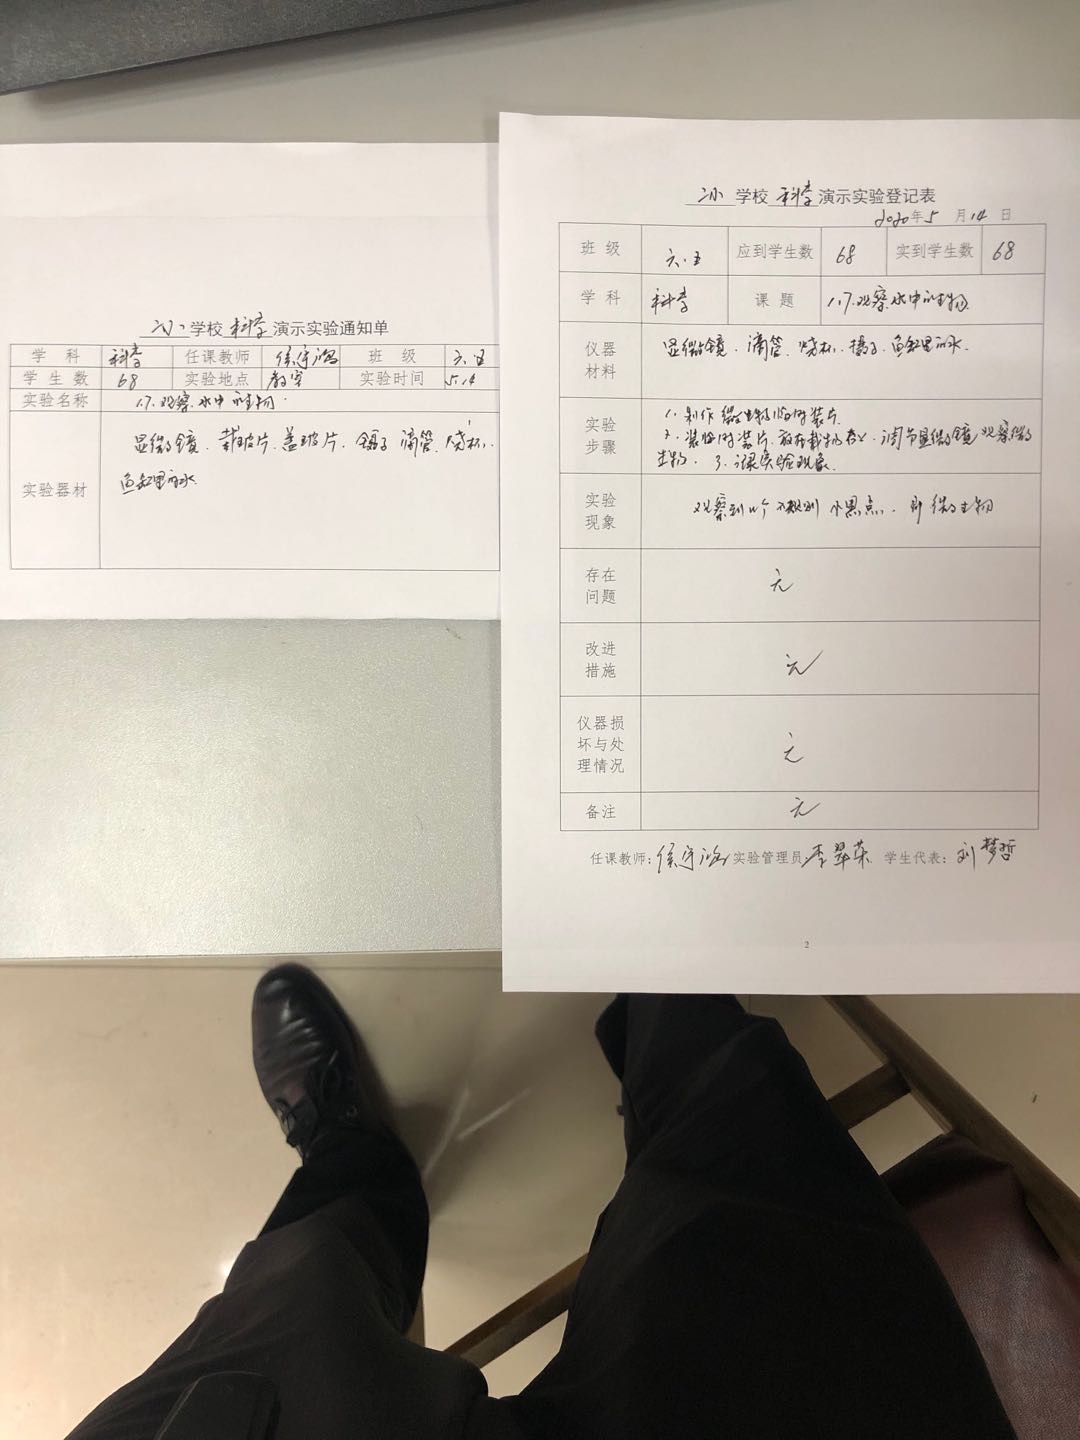 学校 科学 演示实验通知单
学科 科学 任课教师 侯守鸿 班级 六.五
学生数 68 实验地点 教室 实验时间 5.14
实验名称 1.7.观察水中的生物.
显微镜.载玻片.盖玻片.镊子 滴管.烧杯.
实验器材
鱼缸里的水
学校 科学 演示实验登记表
2020年5月14日
班级 六.五 应到学生数 68 实到学生数 68
学科 科学 课题 1.7.观察水中的生物
仪器材料 显微镜.滴管.烧杯.镊子.鱼缸里的水.
实验步骤 1.制作微生物临时装片.
2.装临时装片.放在载物台上.调节显微镜观察微
生物.3.记录实验现象.
实验现象 观察到 不规则小黑点.即微生物
存在问题 无
改进措施 无
仪器损坏与处理情况 无
备注 无
任课教师:侯守鸿 实验管理员:李翠英 学生代表:刘梦哲
2